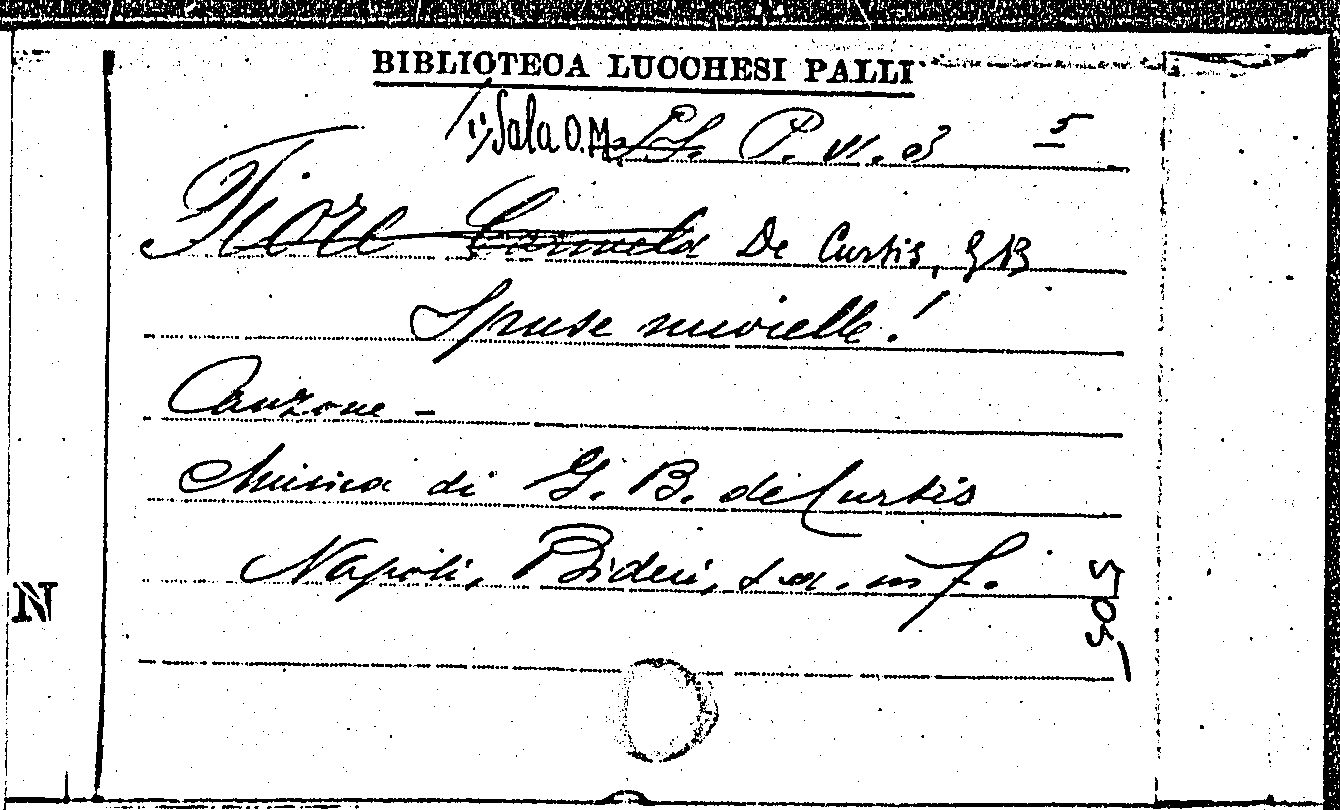 BIBLIOTECA LUCCHESI PALLI
Sala O.M. P. VI. 3 5
Fiore Carmela De Curtis, GB
Spuse nuvielle!
Canzone -
Musica di G. B. de Curtis
Napoli, Bideri, s. a. in f.
N